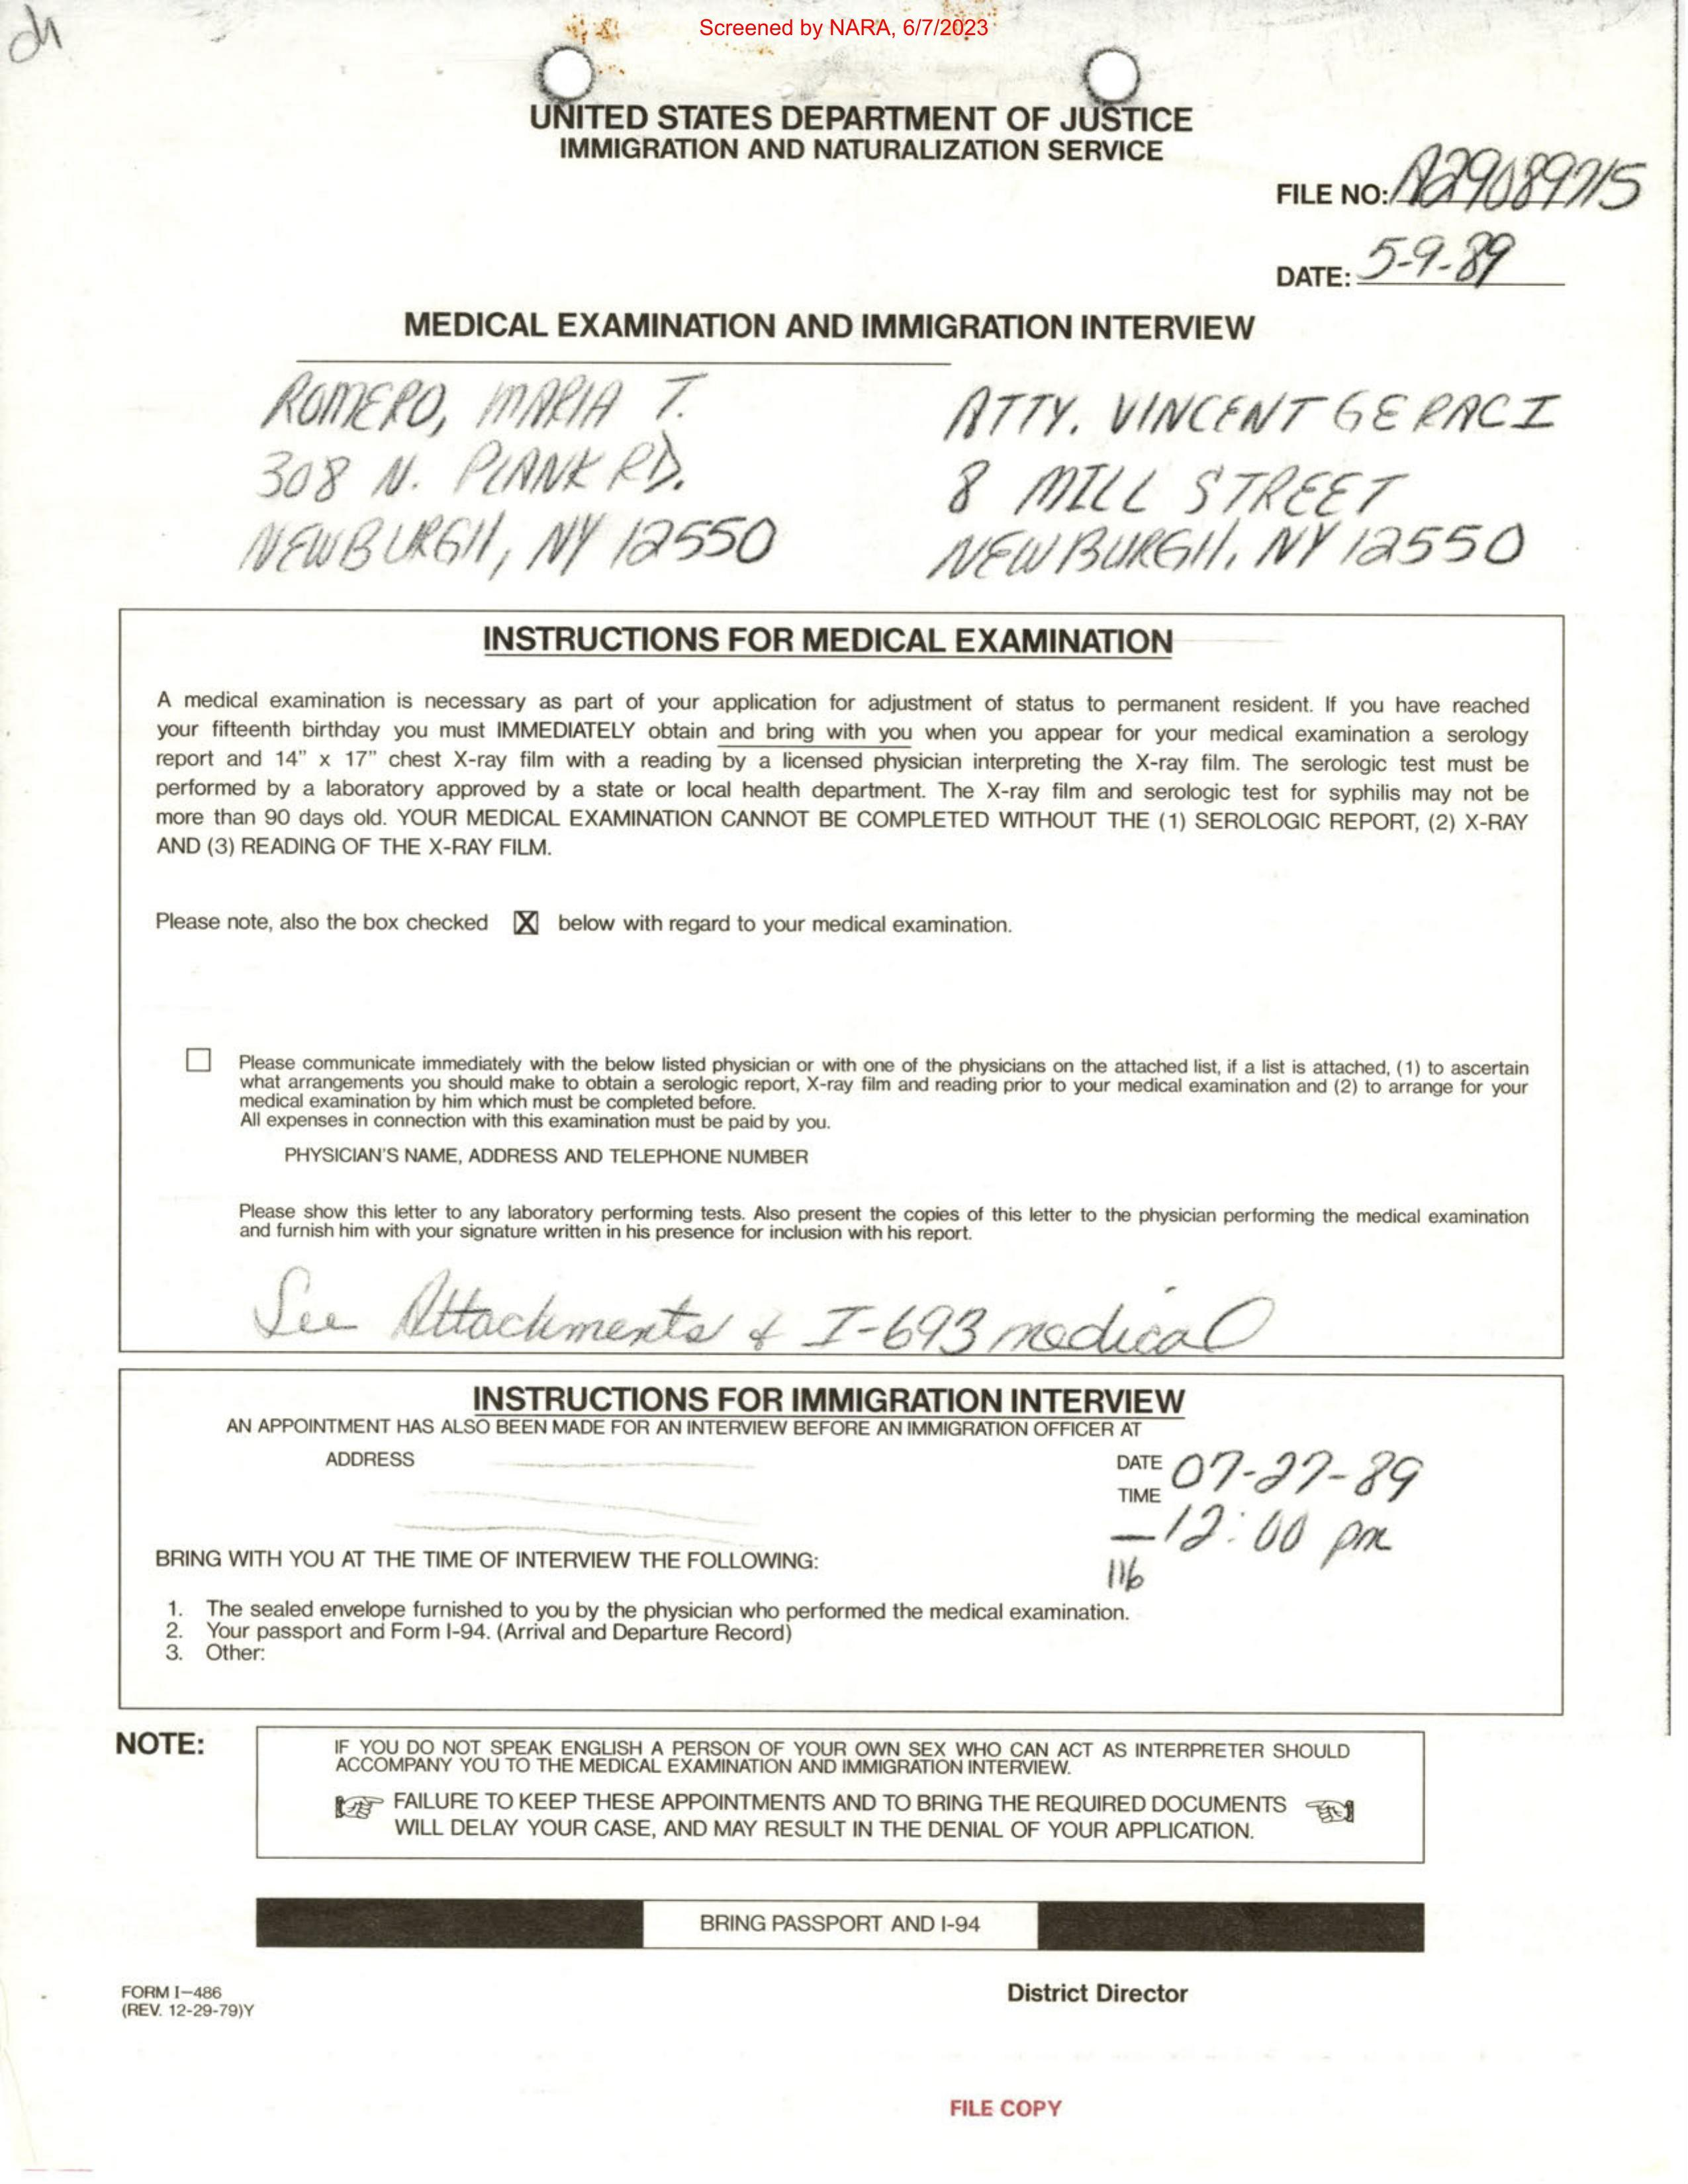 Screened by NARA, 6/7/2023
UNITED STATES DEPARTMENT OF JUSTICE
IMMIGRATION AND NATURALIZATION SERVICE
FILE NO: A29089715
DATE: 5-9-89
MEDICAL EXAMINATION AND IMMIGRATION INTERVIEW
ROMERO, MARIA T.
308 N. PLANK RD.
NEWBURGH, NY 12550
ATTY. VINCENT GERACI
8 MILL STREET
NEWBURGH, NY 12550
INSTRUCTIONS FOR MEDICAL EXAMINATION
A medical examination is necessary as part of your application for adjustment of status to permanent resident. If you have reached
your fifteenth birthday you must IMMEDIATELY obtain and bring with you when you appear for your medical examination a serology
report and 14" x 17" chest X-ray film with a reading by a licensed physician interpreting the X-ray film. The serologic test must be
performed by a laboratory approved by a state or local health department. The X-ray film and serologic test for syphilis may not be
more than 90 days old. YOUR MEDICAL EXAMINATION CANNOT BE COMPLETED WITHOUT THE (1) SEROLOGIC REPORT, (2) X-RAY
AND (3) READING OF THE X-RAY FILM.
Please note, also the box checked X below with regard to your medical examination.
Please communicate immediately with the below listed physician or with one of the physicians on the attached list, if a list is attached, (1) to ascertain
what arrangements you should make to obtain a serologic report, X-ray film and reading prior to your medical examination and (2) to arrange for your
medical examination by him which must be completed before.
All expenses in connection with this examination must be paid by you.
PHYSICIAN'S NAME, ADDRESS AND TELEPHONE NUMBER
Please show this letter to any laboratory performing tests. Also present the copies of this letter to the physician performing the medical examination
and furnish him with your signature written in his presence for inclusion with his report.
See Attachments & I-693 medical
INSTRUCTIONS FOR IMMIGRATION INTERVIEW
AN APPOINTMENT HAS ALSO BEEN MADE FOR AN INTERVIEW BEFORE AN IMMIGRATION OFFICER AT
ADDRESS
DATE 07-27-89
TIME
12:00 pm
116
BRING WITH YOU AT THE TIME OF INTERVIEW THE FOLLOWING:
1. The sealed envelope furnished to you by the physician who performed the medical examination.
2. Your passport and Form I-94. (Arrival and Departure Record)
3. Other:
NOTE:
IF YOU DO NOT SPEAK ENGLISH A PERSON OF YOUR OWN SEX WHO CAN ACT AS INTERPRETER SHOULD
ACCOMPANY YOU TO THE MEDICAL EXAMINATION AND IMMIGRATION INTERVIEW.
FAILURE TO KEEP THESE APPOINTMENTS AND TO BRING THE REQUIRED DOCUMENTS
WILL DELAY YOUR CASE, AND MAY RESULT IN THE DENIAL OF YOUR APPLICATION.
BRING PASSPORT AND I-94
FORM I-486
(REV. 12-29-79)Y
District Director
FILE COPY